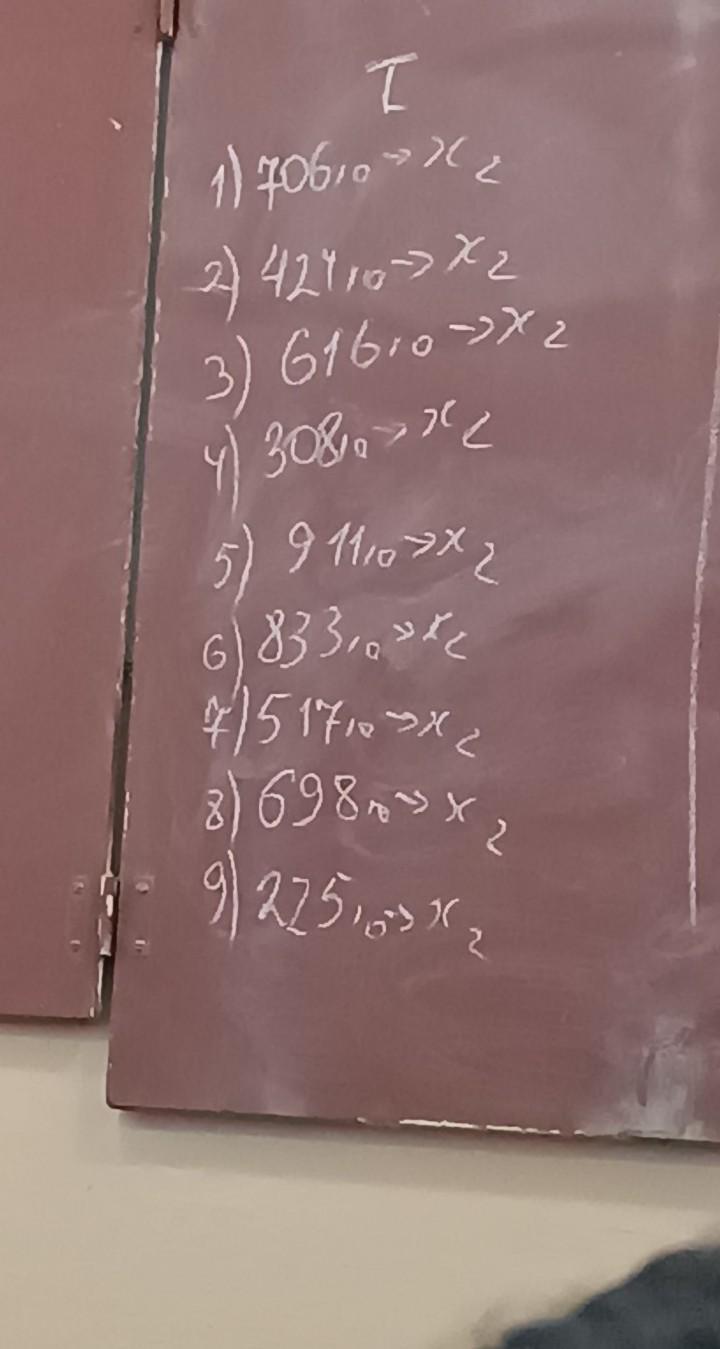 I
1) 706₁₀ → x₂
2) 424₁₀ → x₂
3) 616₁₀ → x₂
4) 308₁₀ → x₂
5) 911₁₀ → x₂
6) 833₁₀ → x₂
7) 517₁₀ → x₂
8) 698₁₀ → x₂
9) 225₁₀ → x₂